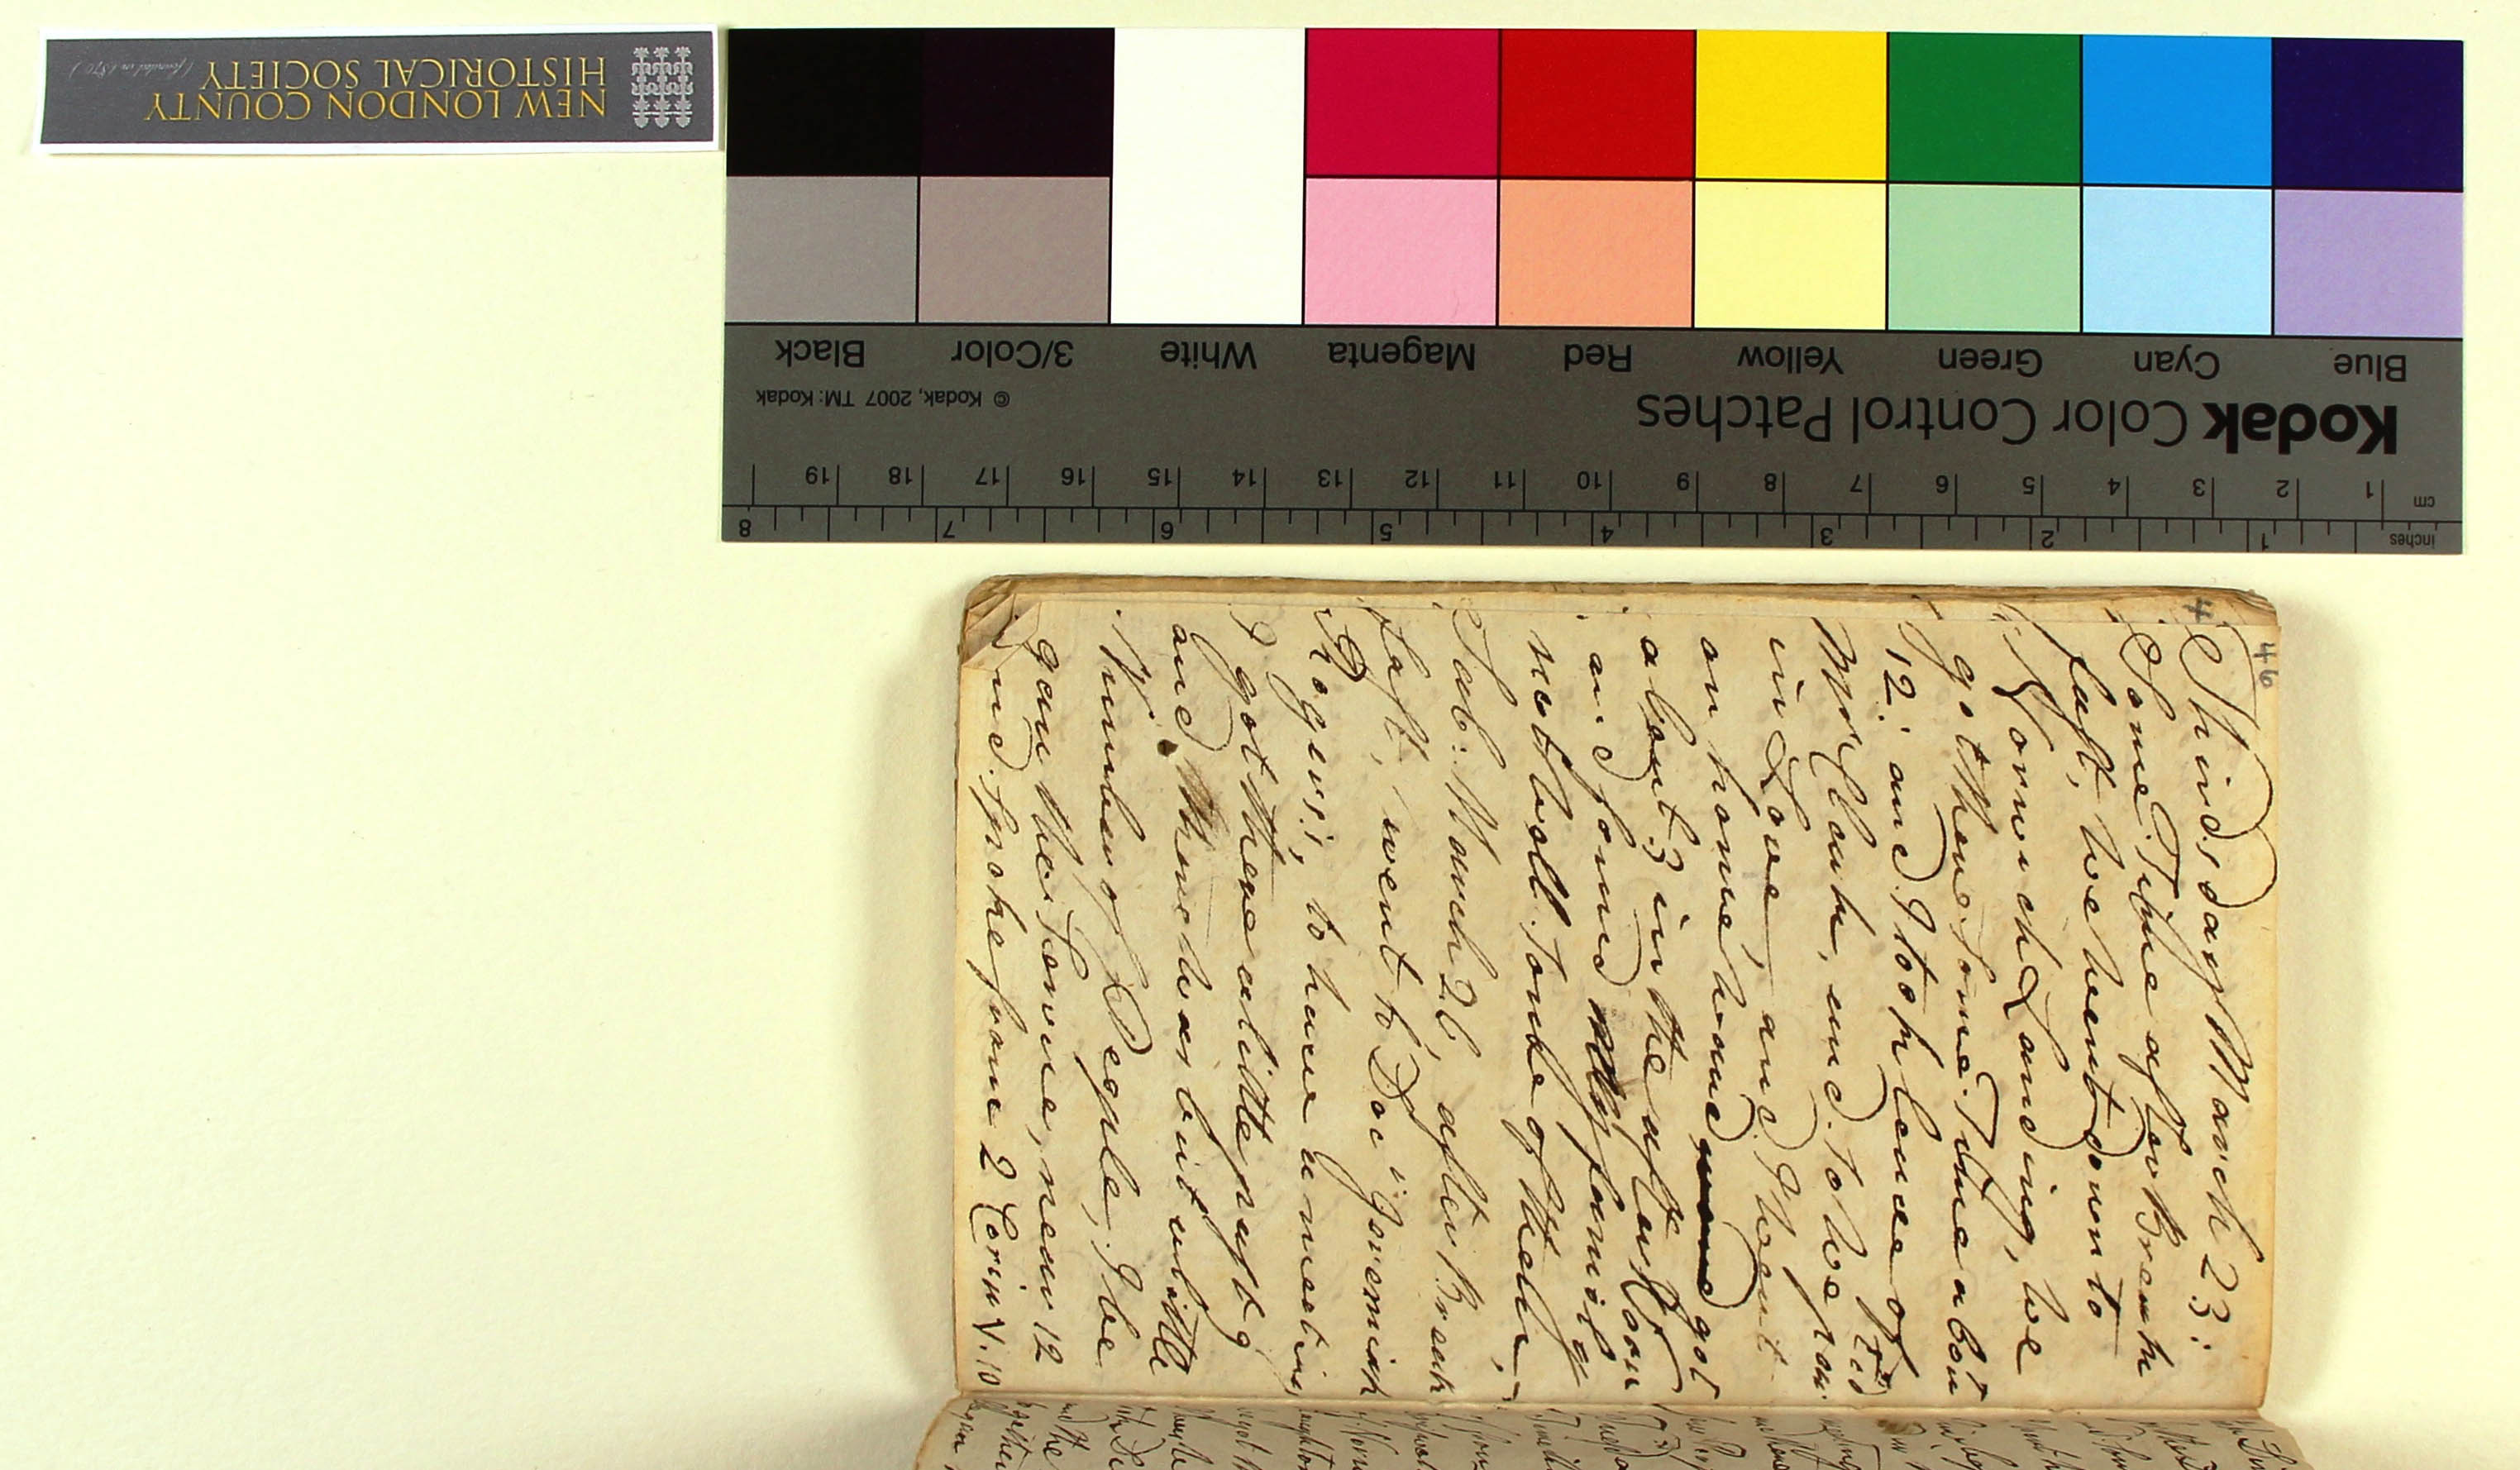 NEW LONDON COUNTY
HISTORICAL SOCIETY (founded in 1870)
Black 3/Color White Magenta Red Yellow Green Cyan Blue
© Kodak, 2007 TM: Kodak
Kodak Color Control Patches
cm 1 2 3 4 5 6 7 8 9 10 11 12 13 14 15 16 17 18 19
inches 1 2 3 4 5 6 7 8
46
Thirdsday March 23:
Some Time after Break
fast, we went down to
Norwich Landing, we
got there some Time about
12: and I took leave of
Mr Clark, and. To we par
ted
in Love, and I went
on home, and got
about 3 in the after Noon
and found my family
not well. Some of them,
Sab: March 26, after Break
fast, went to Doc Jeremiah
Rogers's, to have a meeting
I got there a little past 9
and there was but a little
Number of People, I be
gan the Service, near 12
and Spoke from 2 Corin V. 10